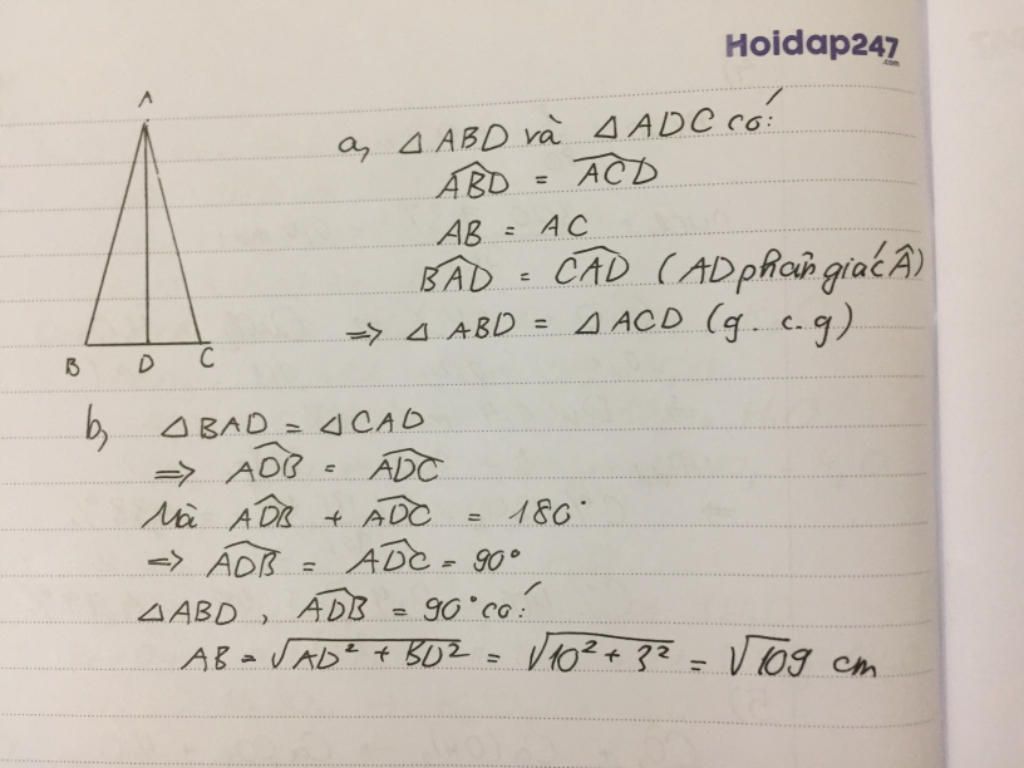 Hoidap247
.com
A
B D C
a, △ABD và △ADC có:
\widehat{ABD} = \widehat{ACD}
AB = AC
\widehat{BAD} = \widehat{CAD} (AD phân giác Â)
=> △ABD = △ACD (g.c.g)
b, △BAD = △CAD
=> \widehat{ADB} = \widehat{ADC}
Mà \widehat{ADB} + \widehat{ADC} = 180°
=> \widehat{ADB} = \widehat{ADC} = 90°
△ABD, \widehat{ADB} = 90° có:
AB = √(AD² + BD²) = √(10² + 3²) = √109 cm